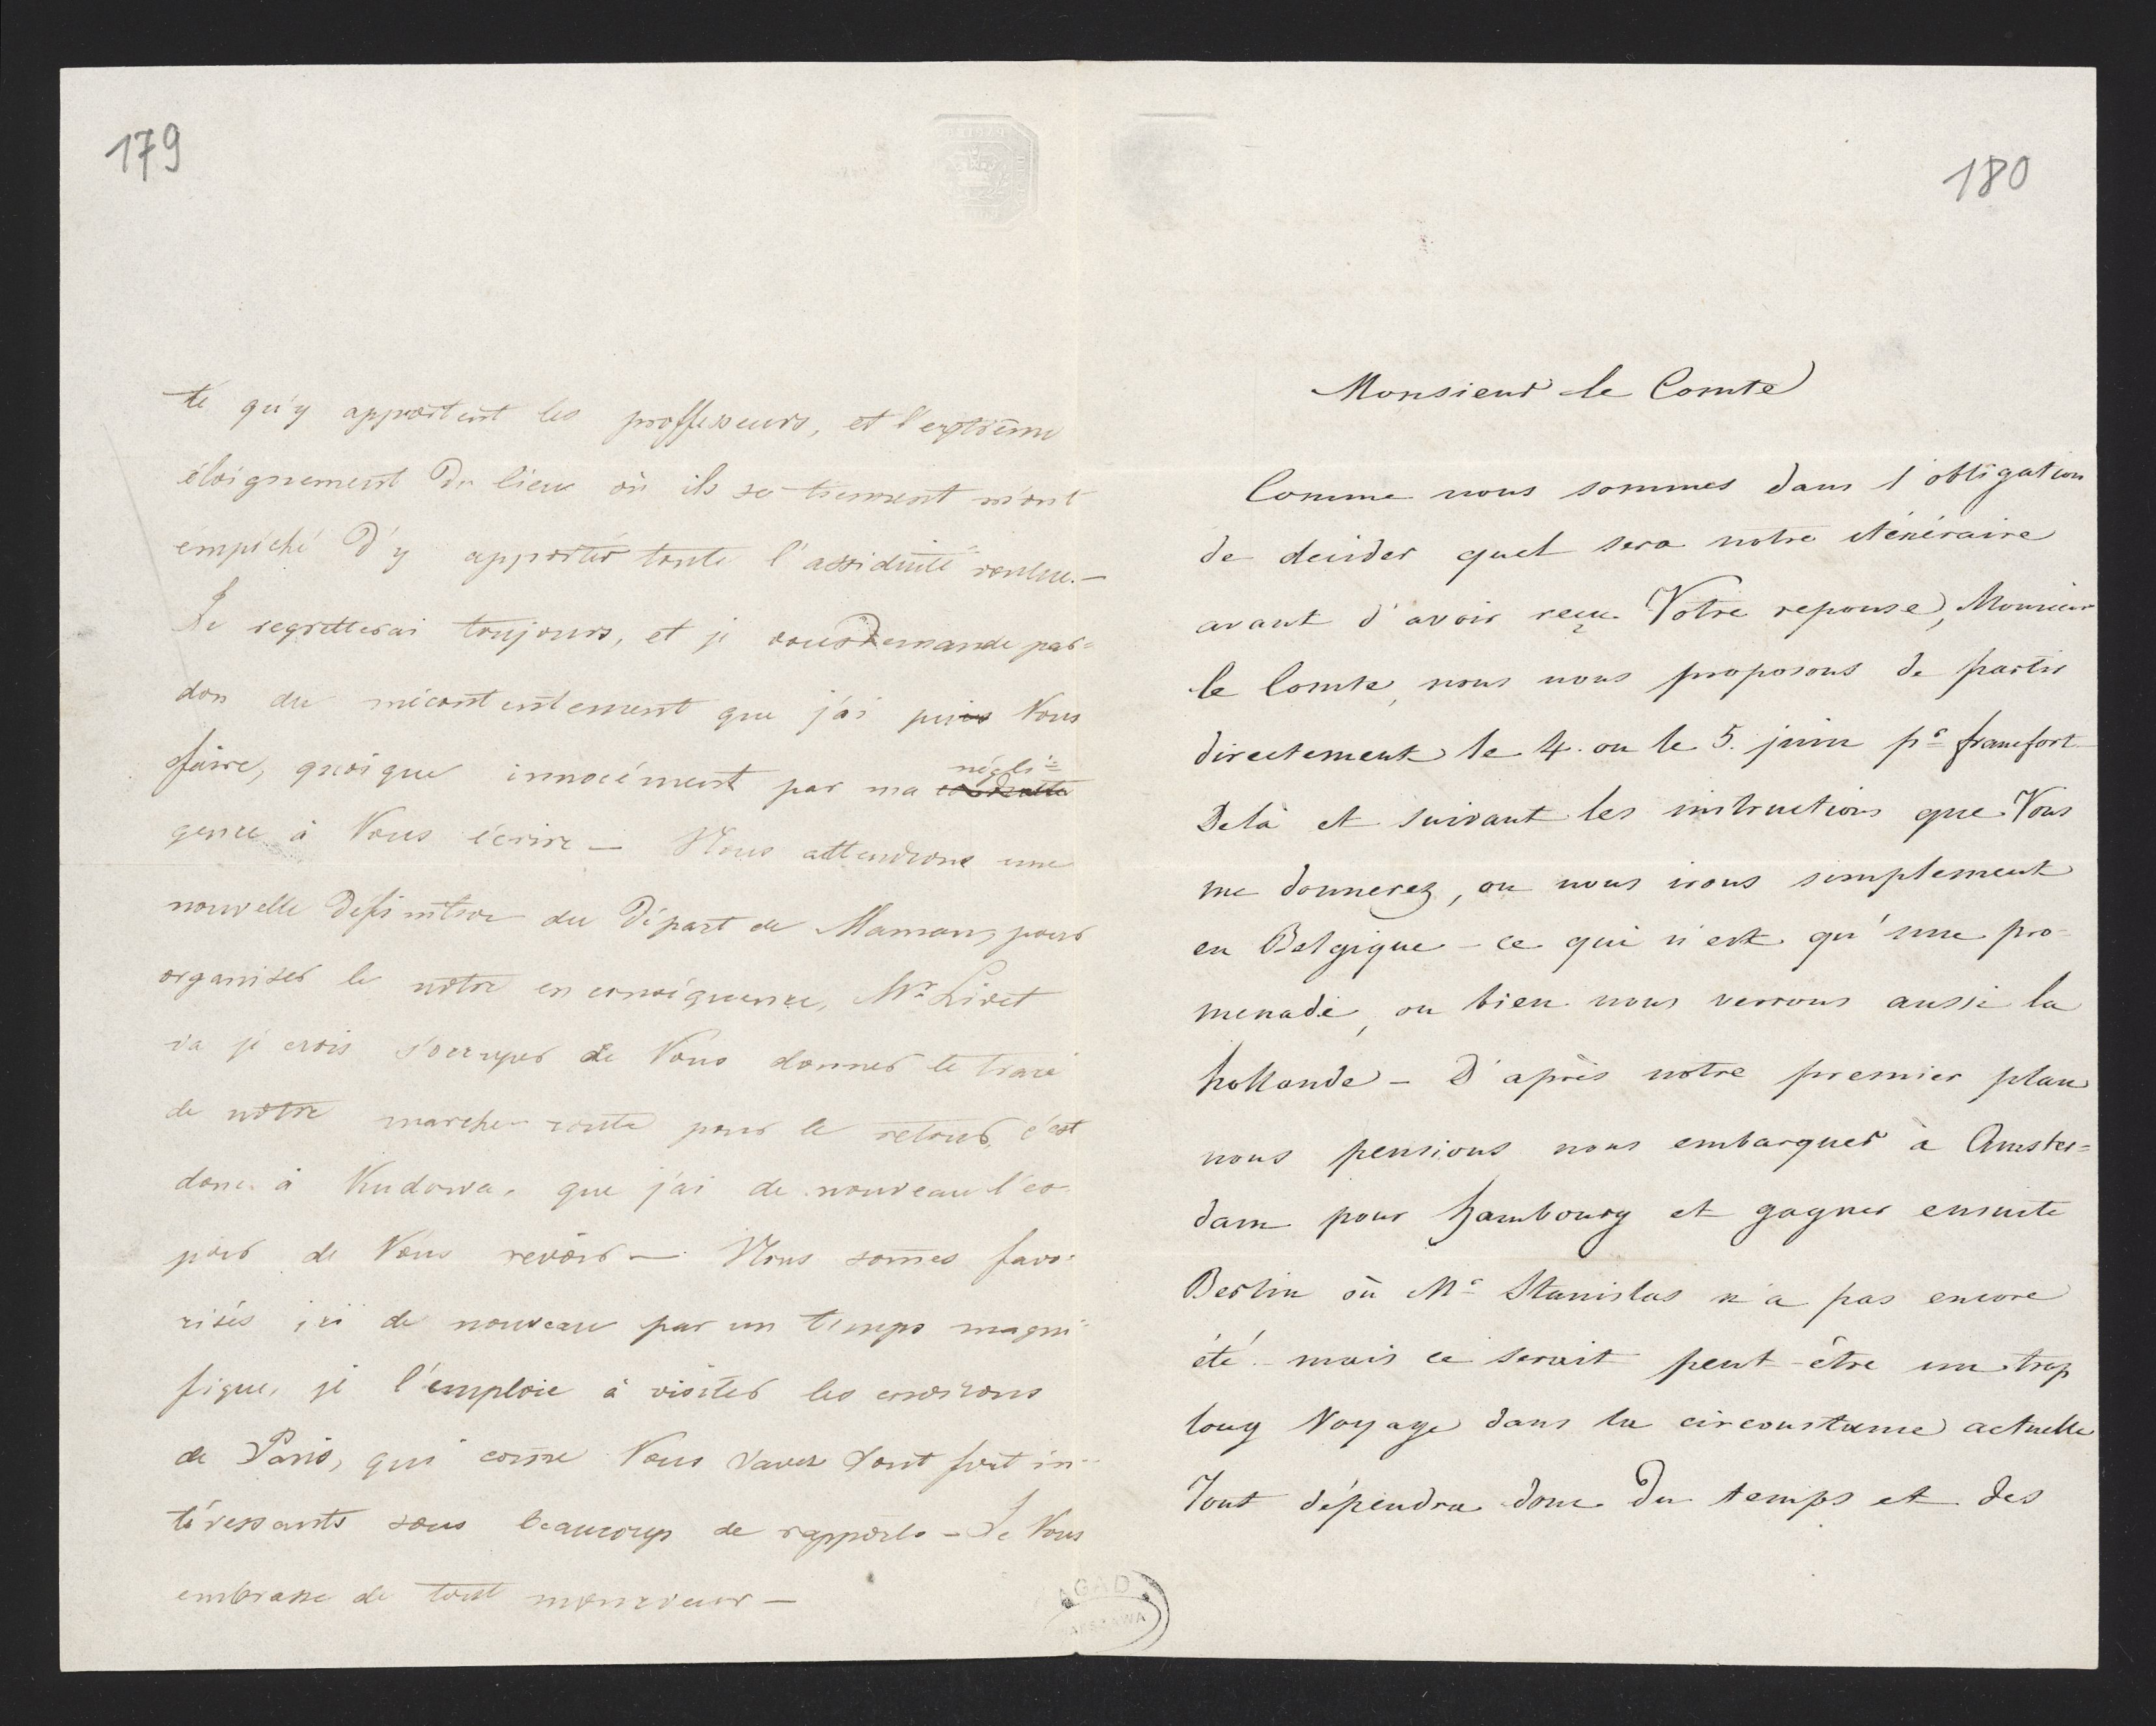 179
té qu'y apportent les proffesseurs, et l'extrême
éloignement du lieu où ils se tiennent m'ont
empêché d'y apporter toute l'assiduité voulue. —
Je regretterai toujours, et je vous demande par=
don du mécontentement que j'ai pu Vous
faire, quoique innocément par ma négli=
gence à Vous écrire — Nous attendrons une
nouvelle définitive du départ de Maman, pour
organiser le nôtre en conséquence, Mr. Livet
va je crois s'occuper de Vous donner le tracé
de nôtre marche-route pour le retour, c'est
donc à Kudowa, que j'ai de nouveau l'es
poir de Vous revoir — Nous somes favo-
risés ici de nouveau par un temps magni-
fique, je l'emploie à visiter les environs
de Paris, qui come Vous savez sont fort in-
téressants sous beaucoup de rapports — Je Vous
embrasse de tout mon coeur —
180
Monsieur le Comte
Comme nous sommes dans l'obligation
de decider quel sera notre iténéraire
avant d'avoir reçu Votre reponse, Monsieur
le Comte, nous nous proposons de partir
directement le 4. ou le 5. juin pr francfort
Delà et suivant les instructions que Vous
me donnerez, ou nous irons simplement
en Belgique — ce qui n'est qu'une pro-
menade, ou bien nous verrons aussi la
hollande — D'après notre premier plan
nous pensions nous embarquer à Amster=
dam pour hambourg et gagner ensuite
Berlin où Mr Stanislas n'a pas encore
été — mais ce serait peut-être un trop
long Voyage dans la circonstance actuelle
Tout dépendra donc du temps et des
AGAD
WARSZAWA